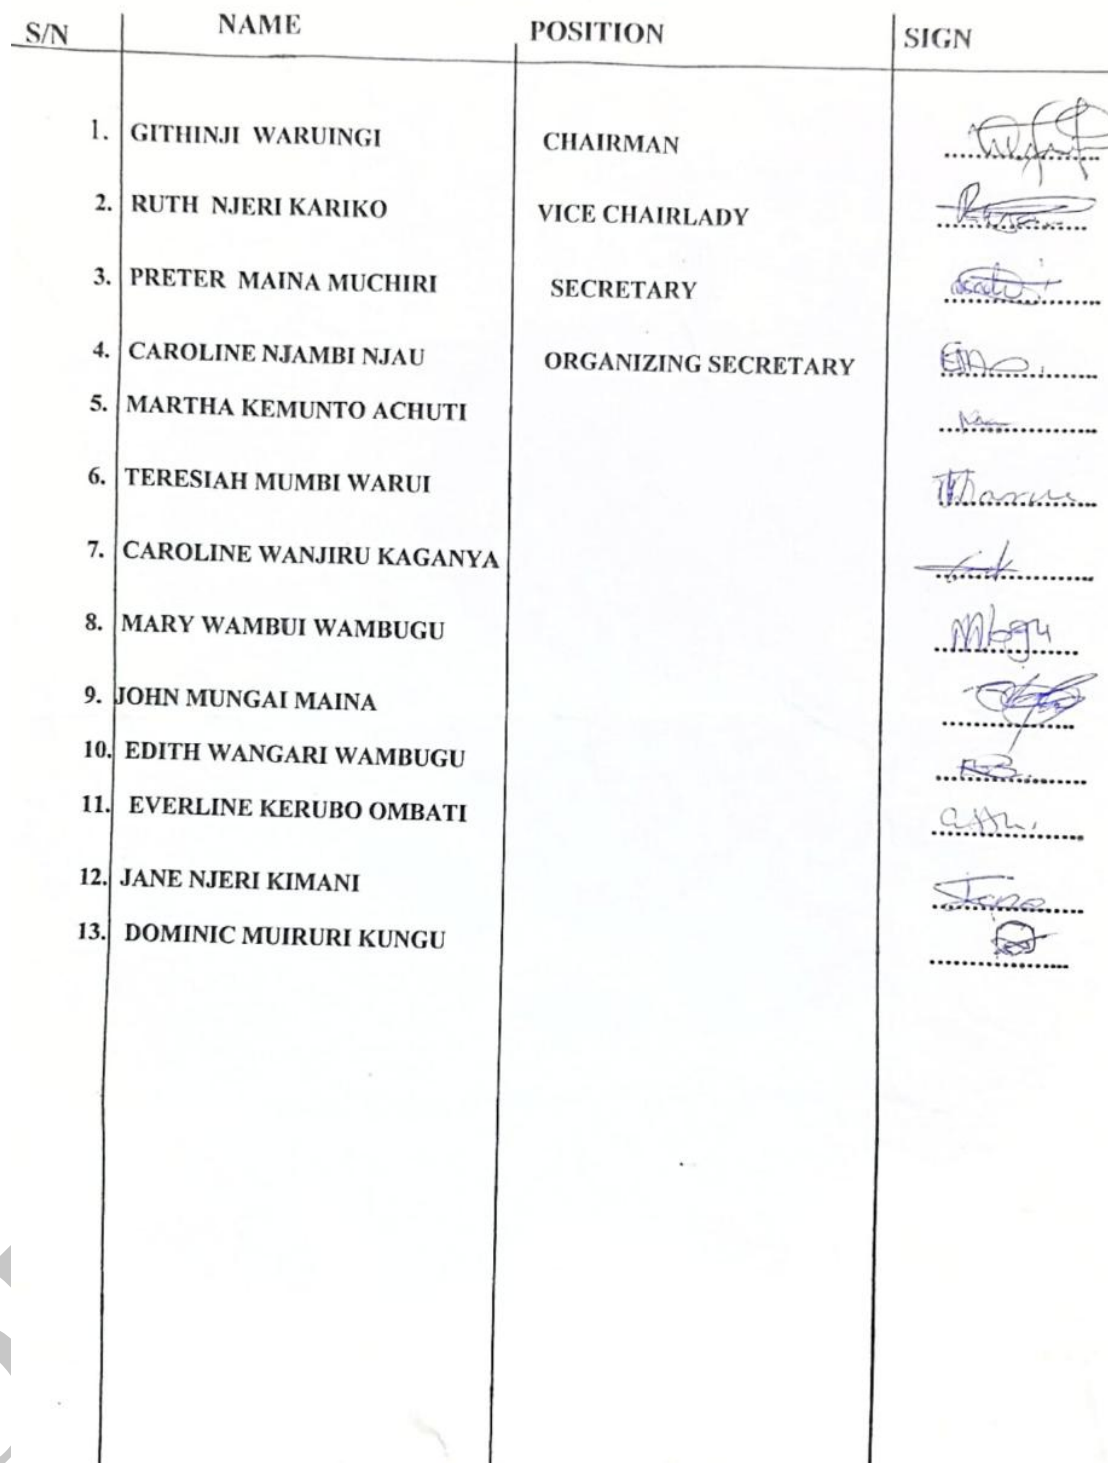 S/N NAME POSITION SIGN
1. GITHINJI WARUINGI CHAIRMAN
2. RUTH NJERI KARIKO VICE CHAIRLADY
3. PRETER MAINA MUCHIRI SECRETARY
4. CAROLINE NJAMBI NJAU ORGANIZING SECRETARY
5. MARTHA KEMUNTO ACHUTI
6. TERESIAH MUMBI WARUI
7. CAROLINE WANJIRU KAGANYA
8. MARY WAMBUI WAMBUGU Mbgu
9. JOHN MUNGAI MAINA
10. EDITH WANGARI WAMBUGU
11. EVERLINE KERUBO OMBATI
12. JANE NJERI KIMANI Jane
13. DOMINIC MUIRURI KUNGU